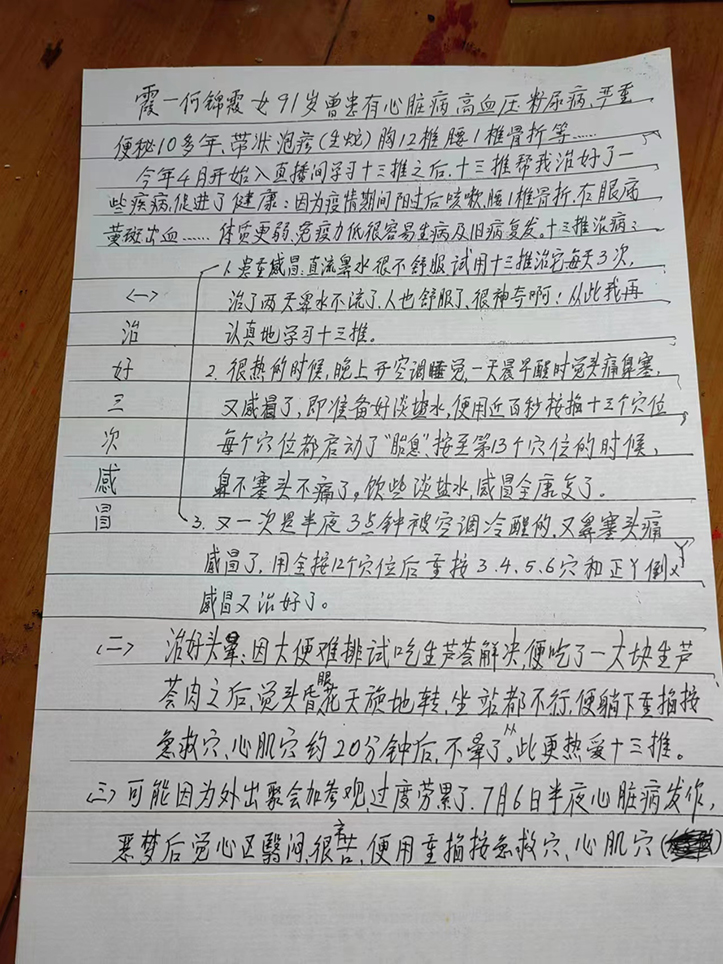 霞一何锦霞女91岁曾患有心脏病、高血压、粉尿病、严重
便秘10多年、带状泡疹(生蛇)胸12椎腰1椎骨折等……
今年4月开始入直播间学习十三推之后,十三推帮我治好了一
些疾病,促进了健康:因为疫情期间阳过后咳嗽腰1椎骨折,右眼底
黄斑出血……体质更弱、免疫力低很容易生病及旧病复发。十三推治病:
1. 患重感冒:直流鼻水很不舒服试用十三推治它每天3次,
治了两天鼻水不流了,人也舒服了,很神奇啊!从此我再
认真地学习十三推。
2. 很热的时候,晚上开空调睡觉,一天晨早醒时觉头痛鼻塞,
又感冒了,即准备好淡盐水,便用近百秒按揸十三个穴位
每个穴位都启动了“胎息”,按至第13个穴位的时候,
鼻不塞头不痛了。饮些淡盐水,感冒全康复了。
3. 又一次是半夜3点钟被空调冷醒的,又鼻塞头痛
感冒了,用全按12个穴位后重按3.4.5.6穴和正丫倒丫
感冒又治好了。
(一)治好三次感冒
(二) 治好头晕:因大便难排试吃生芦荟解决,便吃了一大块生芦
荟肉之后,觉头昏眼花天旋地转,坐站都不行,便躺下重揸按
急救穴、心肌穴约20分钟后,不晕了。从此更热爱十三推。
(三) 可能因为外出聚会加参观,过度劳累了,7月6日半夜心脏病发作,
恶梦后觉心区翳闷,很辛苦,便用重揸按急救穴、心肌穴(